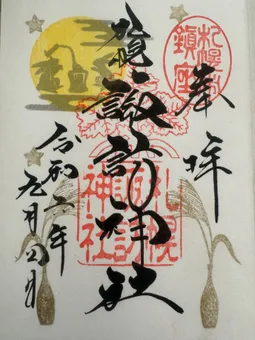 奉拝
札幌村
鎮座
札幌諏訪神社
札幌
諏訪
神社
令和二年
月 日